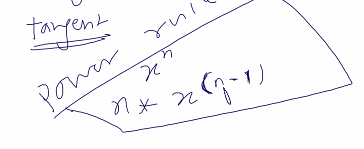 tangent
power rule
x^n
n * x^(n-1)